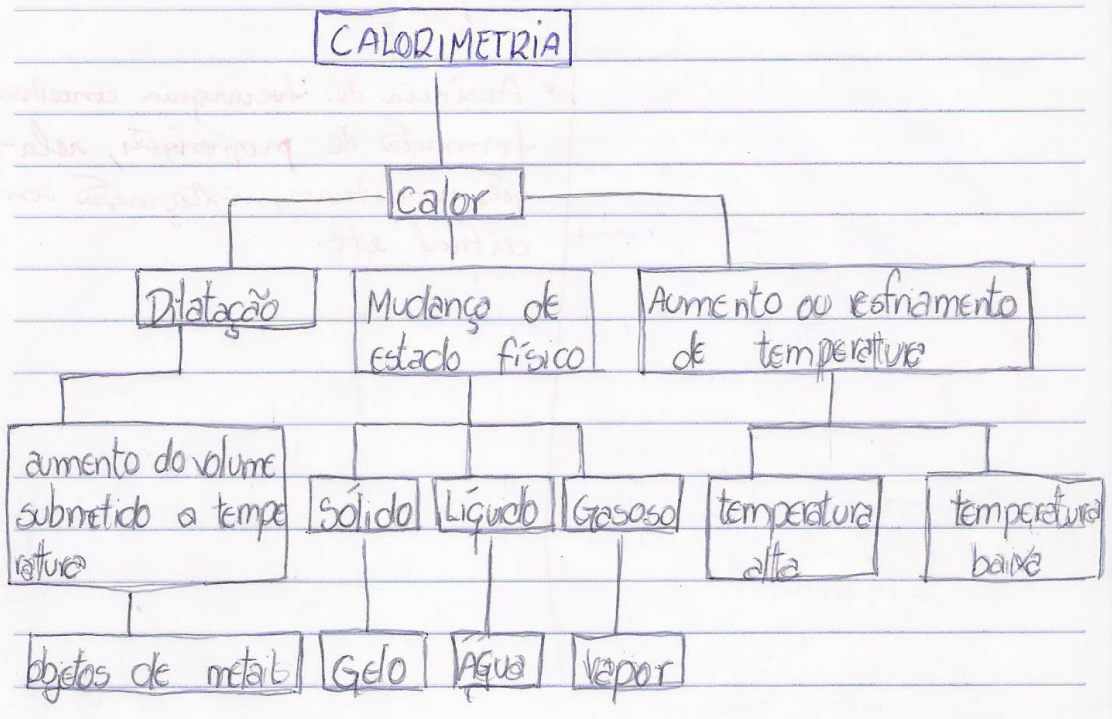 CALORIMETRIA
Calor
Dilatação
Mudança de
estado físico
Aumento ou resfriamento
de temperatura
aumento do volume
submetido a tempe
ratura
Sólido
Líquido
Gasoso
temperatura
alta
temperatura
baixa
objetos de metais
Gelo
Água
Vapor